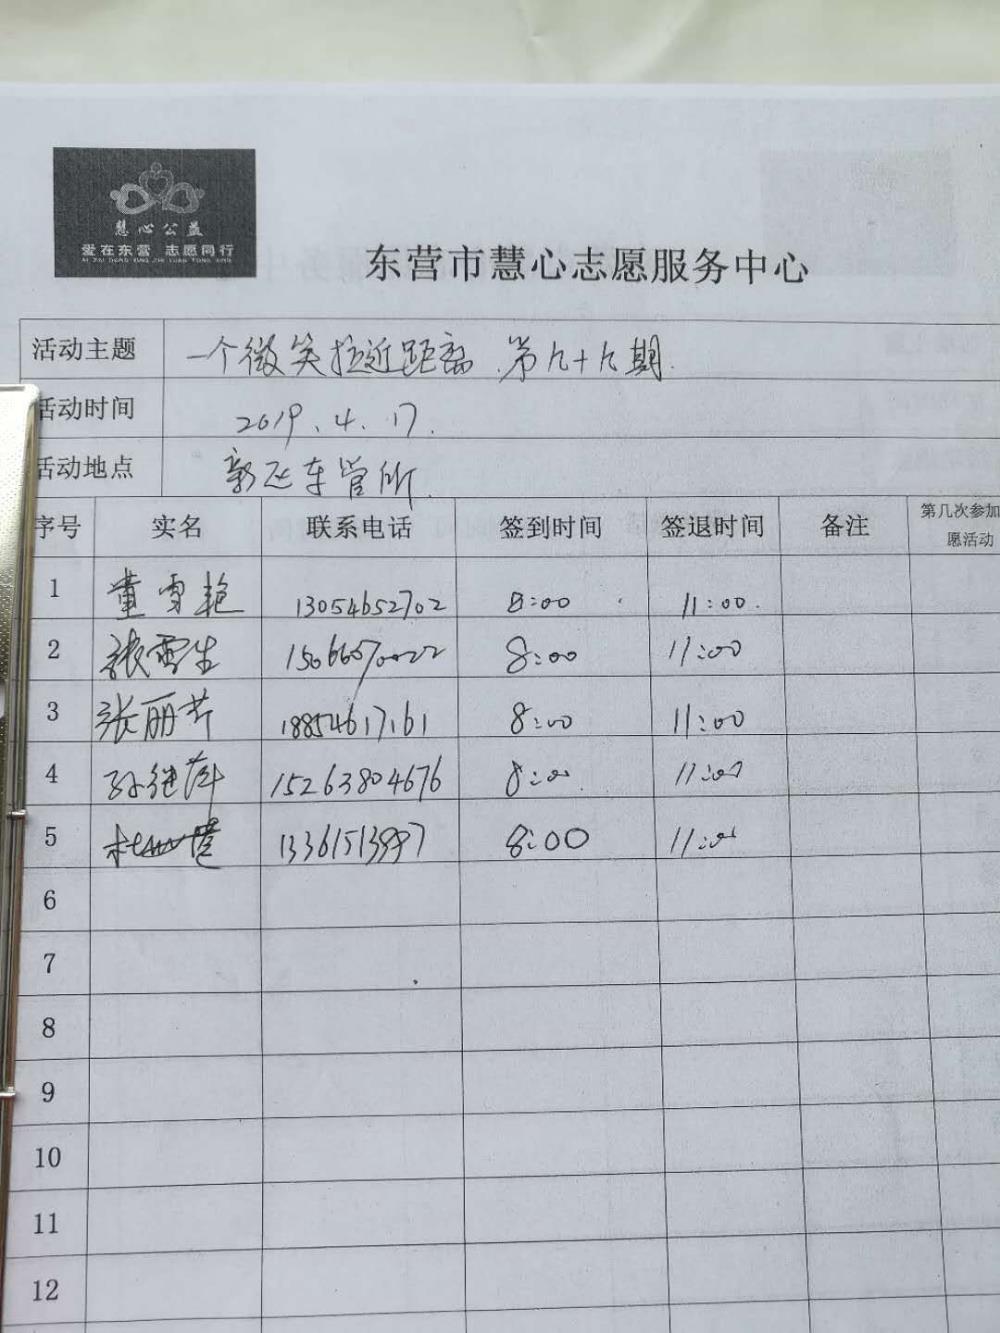 慧心公益
爱在东营 志愿同行
AI ZAI DONG YING ZHI YUAN TONG XING
东营市慧心志愿服务中心
活动主题 一个微笑拉近距离.第九十九期.
活动时间 2019.4.17.
活动地点 车管所.
序号 实名 联系电话 签到时间 签退时间 备注 第几次参加
愿活动
1 董雪艳 13054652702 8:00 11:00.
2 张雪生 8:00 11:00
3 张丽芹 18854617161 8:00 11:00
4 孙继萍 15263804676 8:00 11:00
5 8:00 11:00
6
7
8
9
10
11
12